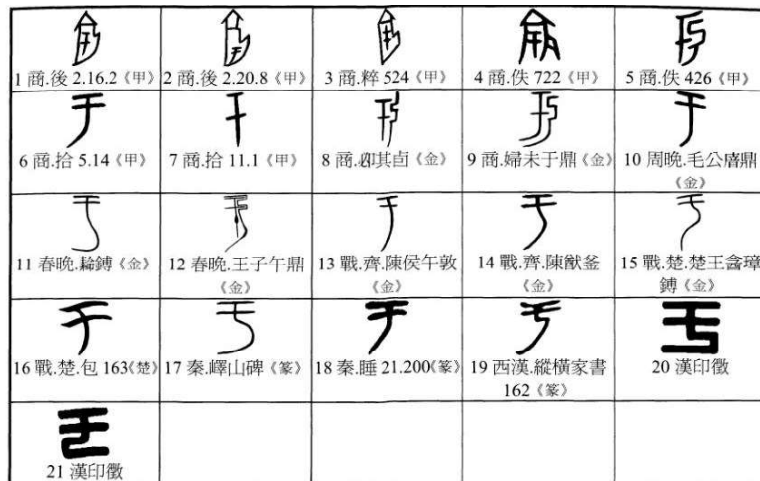 1 商.後 2.16.2《甲》
2 商.後 2.20.8《甲》
3 商.粹 524《甲》
4 商.佚 722《甲》
5 商.佚 426《甲》
6 商.拾 5.14《甲》
7 商.拾 11.1《甲》
8 商.𠨘其卣《金》
9 商.婦未于鼎《金》
10 周晚.毛公鼎
《金》
11 春晚.鎛《金》
12 春晚.王子午鼎
《金》
13 戰.齊.陳侯午敦
《金》
14 戰.齊.陳猷釜
《金》
15 戰.楚.楚王酓璋
鎛《金》
16 戰.楚.包 163《楚》
17 秦.嶧山碑《篆》
18 秦.睡 21.200《篆》
19 西漢.縱橫家書
162《篆》
20 漢印徵
21 漢印徵